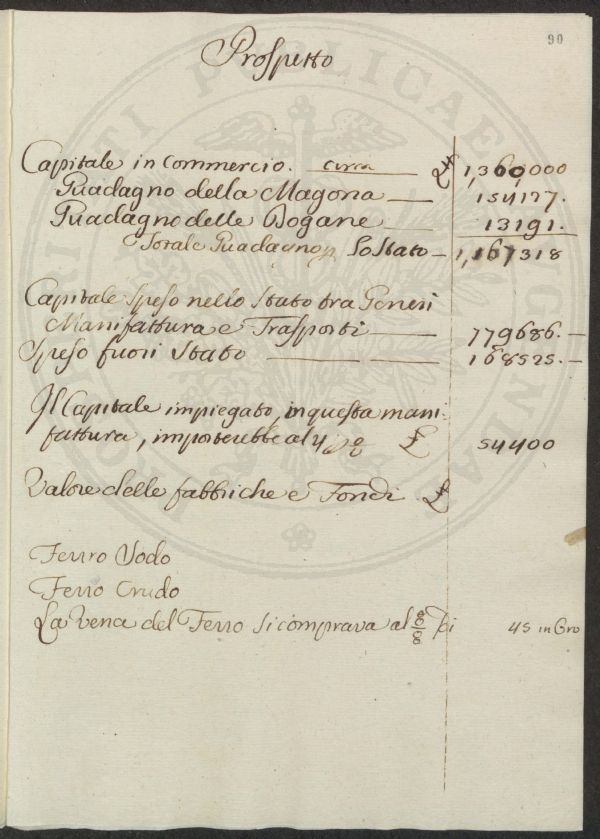 90
Prospetto
Capitale in Commercio. circa £ 1,360,000
Guadagno della Magona 154127.
Guadagno delle Dogane 13191.
Totale Guadagno p. Lo Stato 1,167318
Capitale Speso nello Stato tra Generi
Manifattura e Trasporti 779686.
Speso fuori Stato 168525.
Il Capitale impiegato, in questa mani:
fattura, importerebbe al 4 £ 54400
Valore delle fabbriche e Fondi £
Ferro Sodo
Ferro Crudo
La Vena del Ferro si comprava al di 45 in Oro